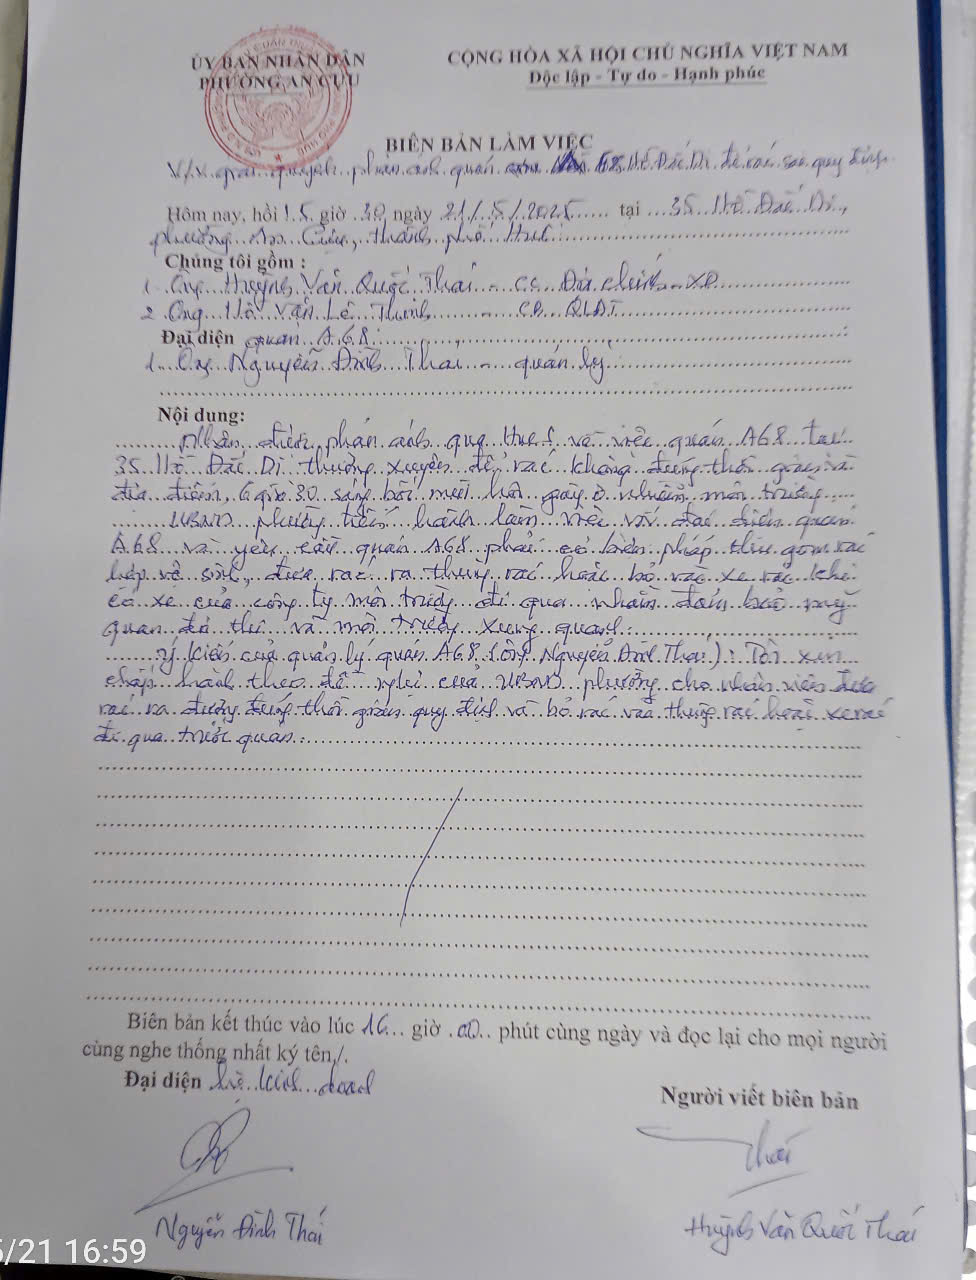 ỦY BAN NHÂN DÂN
PHƯỜNG AN CỰU
CỘNG HÒA XÃ HỘI CHỦ NGHĨA VIỆT NAM
Độc lập - Tự do - Hạnh phúc
BIÊN BẢN LÀM VIỆC
V/v giải quyết phản ánh quán 35 Hồ Đắc Di để rác sai quy định
Hôm nay, hồi 15 giờ 30, ngày 21/5/2025 tại 35 Hồ Đắc Di,
phường An Cựu, thành phố Huế
Chúng tôi gồm :
1. Ông Huỳnh Văn Quốc Thái - CC Địa chính - XD
2. Ông Hồ Văn Lê Thịnh - CB QLĐT
Đại diện quán A68
1. Ông Nguyễn Đình Thái - quản lý
Nội dung:
Nhận được phản ánh qua Hue-S về việc quán A68 tại
35 Hồ Đắc Di thường xuyên để rác không đúng thời gian và
địa điểm, 6 giờ 30 sáng bốc mùi hôi gây ô nhiễm môi trường
UBND phường tiến hành làm việc với đại diện quán
A68 và yêu cầu quán A68 phải có biện pháp thu gom rác
hợp vệ sinh, đưa rác ra thùng rác hoặc bỏ vào xe rác khi
có xe của công ty môi trường đi qua nhằm đảm bảo mỹ
quan đô thị và môi trường xung quanh.
Ý kiến của quản lý quán A68 (ông Nguyễn Đình Thái): Tôi xin
chấp hành theo đề nghị của UBND phường cho nhân viên đưa
rác ra đường đúng thời gian quy định và bỏ rác vào thùng rác hoặc xe rác
đi qua trước quán.
Biên bản kết thúc vào lúc 16 giờ 00 phút cùng ngày và đọc lại cho mọi người
cùng nghe thống nhất ký tên./.
Đại diện hộ kinh doanh
Người viết biên bản
Thái
Nguyễn Đình Thái
Huỳnh Văn Quốc Thái
5/21 16:59